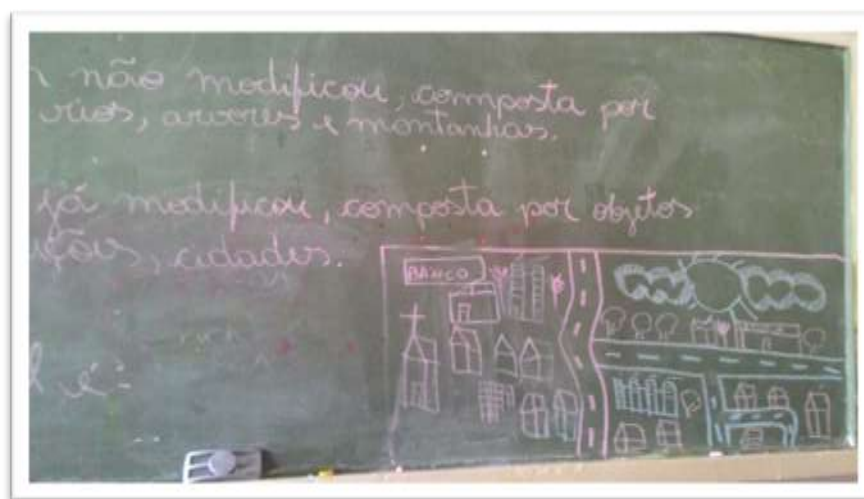 não modificou, composta por
rios, arvores e montanhas.
já modificou, composta por objetos
cidades.
BANCO
é: